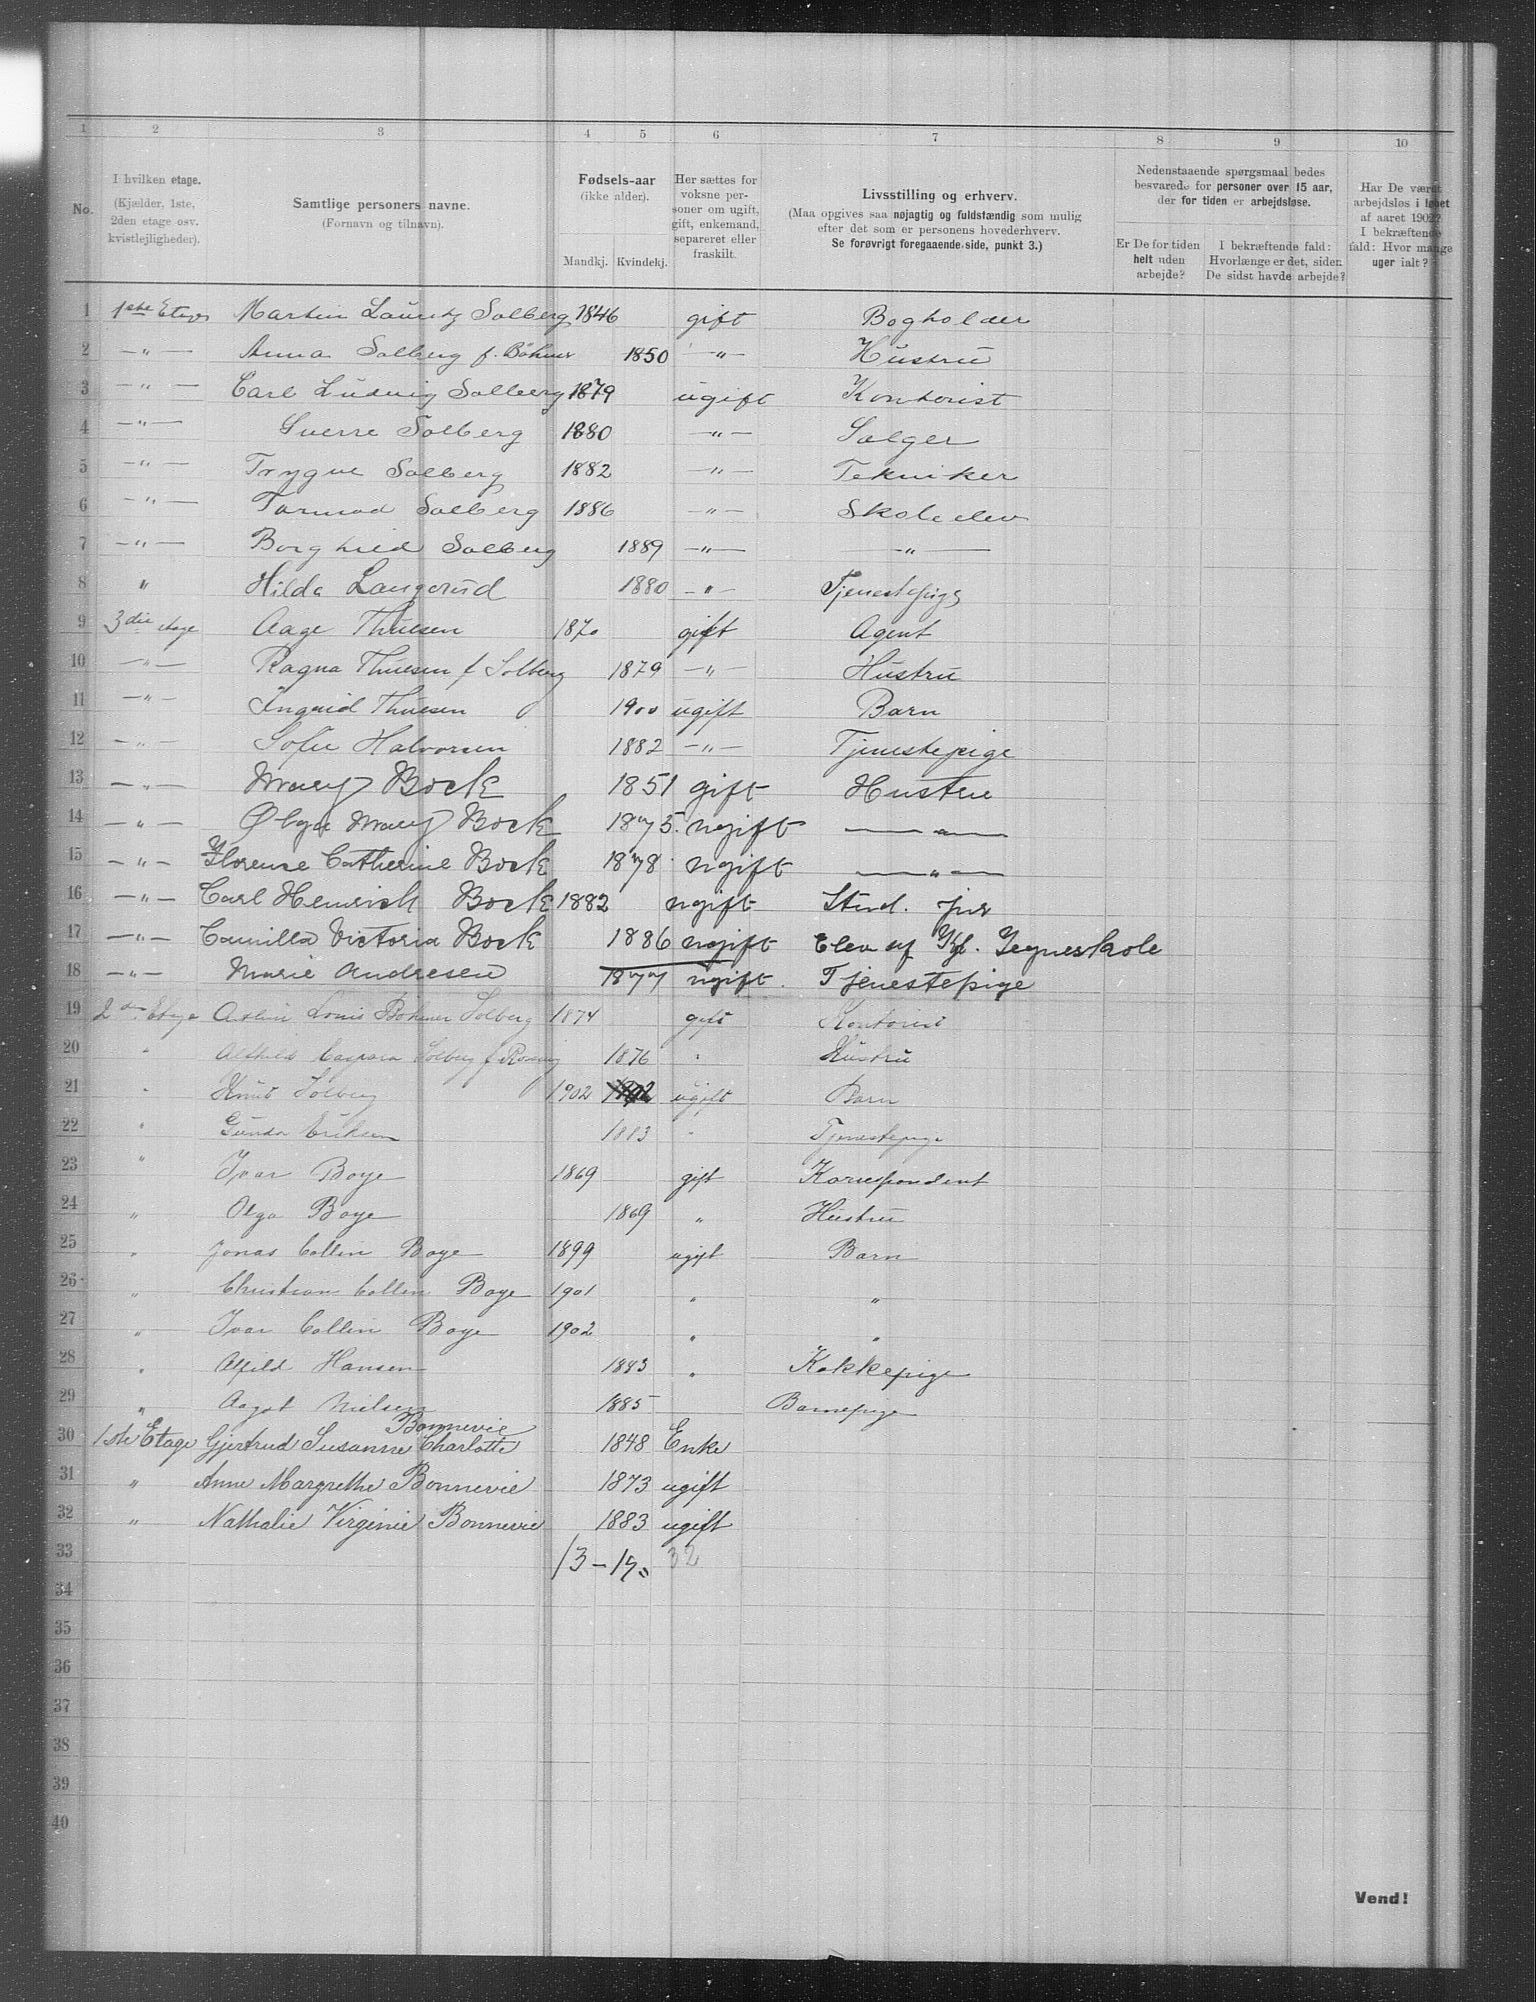 1 2 3 4 5 6 7 8 9 10
No.
I hvilken etage. (Kjælder, 1ste, 2den etage osv. kvistlejligheder).
Samtlige personers navne. (Fornavn og tilnavn).
Fødsels-aar (ikke alder).
Mandkj. Kvindekj.
Her sættes for voksne personer om ugift, gift, enkemand, separeret eller fraskilt.
Livsstilling og erhverv.
(Maa opgives saa nøjagtig og fuldstændig som mulig efter det som er personens hovederhverv. Se forøvrigt foregaaende side, punkt 3.)
Nedenstaaende spørgsmaal bedes besvarede for personer over 15 aar, der for tiden er arbejdsløse.
Er De for tiden helt uden arbejde?
I bekræftende fald: Hvorlænge er det, siden De sidst havde arbejde?
Har De været arbejdsløs i løbet af aaret 1902? I bekræftende fald: Hvor mange uger ialt?
1 1ste Etage Martin Lauritz Solberg 1846 gift Bogholder
2 —"— Anna Solberg f. Bøhmer 1850 —"— Hustru
3 —"— Carl Ludvig Solberg 1879 ugift Kontorist
4 —"— Sverre Solberg 1880 —"— Sælger
5 —"— Trygve Solberg 1882 —"— Tekniker
6 —"— Tormod Solberg 1886 —"— Skoleelev
7 —"— Borghild Solberg 1889 —"— —"—
8 " Hilda Langerud 1880 —"— Tjenestepige
9 3die etage Aage Thuesen 1870 gift Agent
10 —"— Ragna Thuesen f Solberg 1879 —"— Hustru
11 —"— Ingrid Thuesen 1900 ugift Barn
12 —"— Sofie Halvorsen 1882 —"— Tjenestepige
13 —"— Mary Bock 1851 gift Hustru
14 —"— Olga Mary Bock 1875. ugift —"—
15 —"— Florence Catherine Bock 1878 ugift —"—
16 —"— Carl Henrich Bock 1882 ugift Stud. jur
17 —"— Camilla Victoria Bock 1886 ugift Elev af Kgl. Tegneskole
18 —"— Marie Andresen 1877 ugift. Tjenestepige
19 2den Etage Louis Bøhmer Solberg 1874 gift Kontorist
20 " Solberg f. 1876 " Hustru
21 " Knud Solberg 1902 ugift Barn
22 " Gunda Eriksen 1883 " Tjenestepige
23 " Ivar Boye 1869 gift Korrespondent
24 " Olga Boye 1869 " Hustru
25 " Jonas Collin Boye 1899 ugift Barn
26 " Christian Collin Boye 1901 " "
27 " Ivar Collin Boye 1902 " "
28 " Alfild Hansen 1883 " Kokkepige
29 " Aagot Nielsen 1885 Barnepige
Bonnevie
30 1ste Etage Gjertrud Susanne Charlotte 1848 Enke
31 " Anne Margrethe Bonnevie 1873 ugift
32 " Nathalie Virginie Bonnevie 1883 ugift
33 13 – 19. 32
34
35
36
37
38
39
40
Vend!